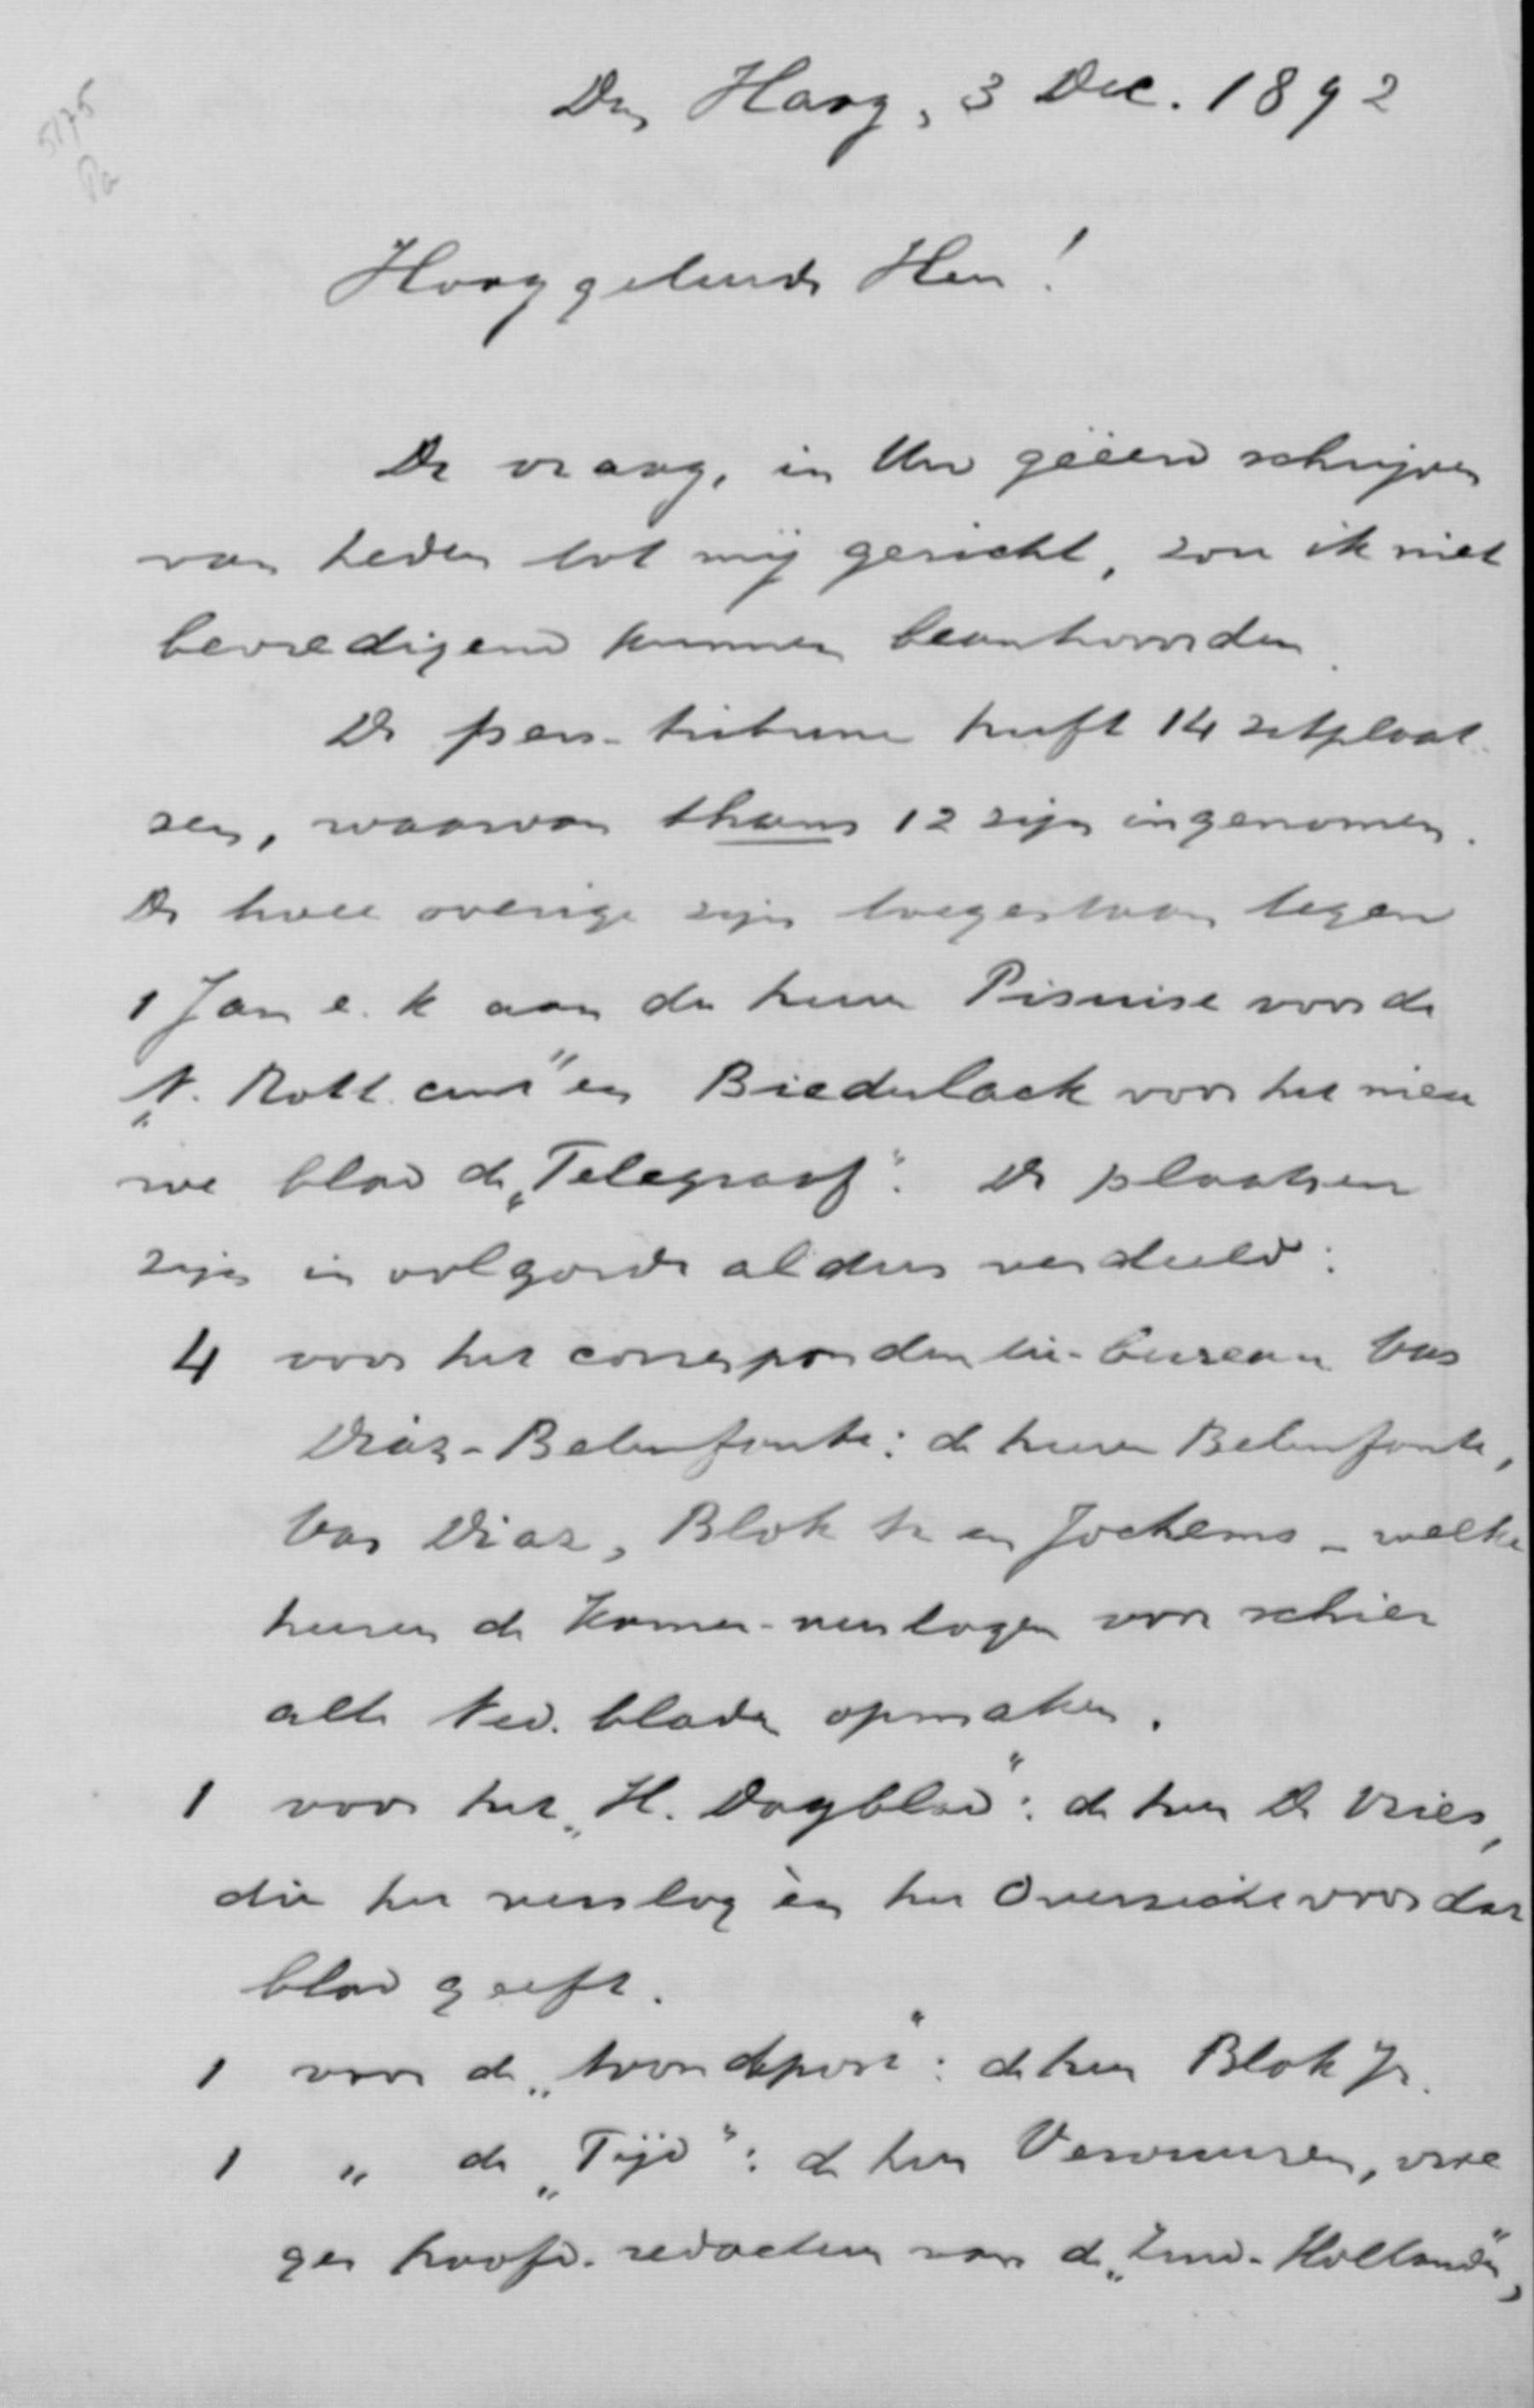 5175
Pa
Den Haag, 3 Dec. 1892
Hooggeleerde Heer!
De vraag, in Uw geëerd schrijven
van heden tot mij gericht, zou ik niet
bevredigend kunnen beantwoorden.
De pers-tribune heeft 14 zitplaat-
sen, waarvan thans 12 zijn ingenomen.
De twee overige zijn toegestaan tegen
1 Jan e.k aan de heeren Pisuisse voor de
„N. Rott. cour" en Biederlack voor het nieu
we blad de „Telegraaf". De plaatsen
zijn in volgorde aldus verdeeld:
4 voor het correspondentie-bureau Vas
Diaz-Belinfante: de heeren Belinfante,
Vas Diaz, Blok Sr en Jochems - welke
heeren de Kamer-verslagen voor schier
alle Ned. bladen opmaken.
1 voor het „H. Dagblad": de heer De Vries,
die het verslag èn het Overzicht voor dat
blad geeft.
1 voor de „Avondpost": de heer Blok Jr.
1 " de „Tijd": de heer Vermeeren, vroe
ger hoofd-redacteur van de „Zuid-Hollander",